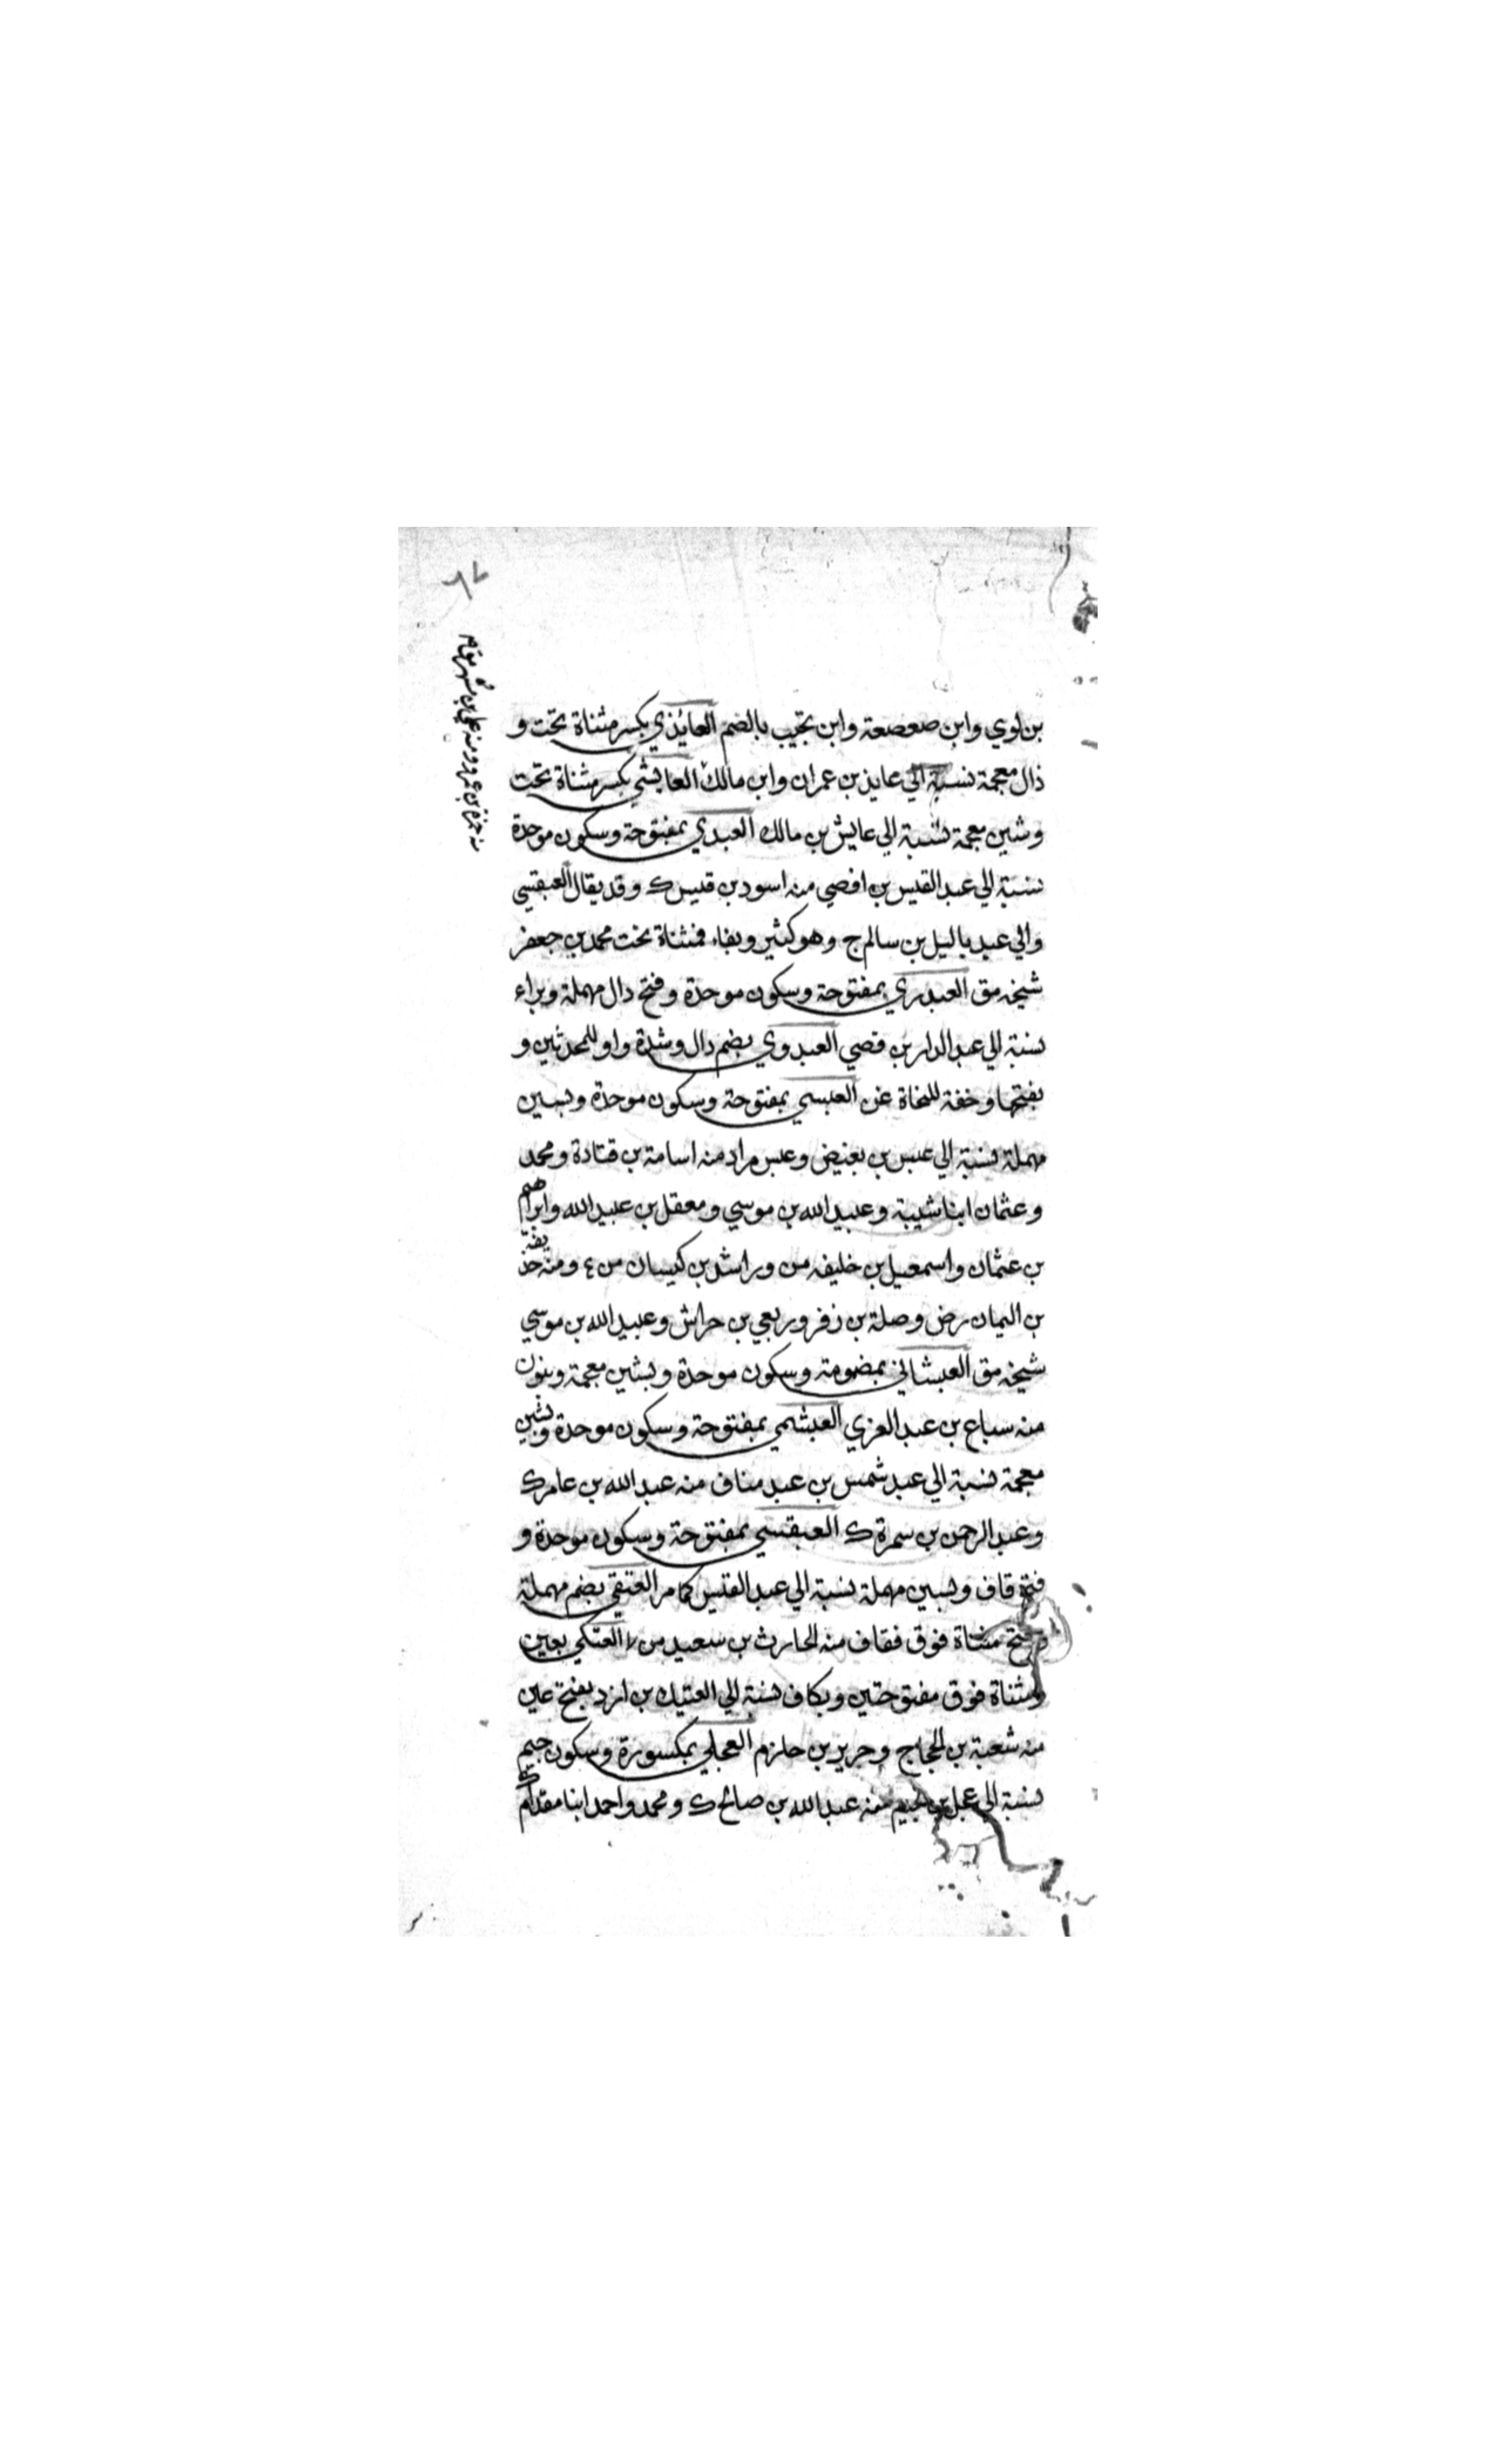 بن لوي وابن صعصعة وابن نجيب بالضم العايذي بكسر مثناة تحت و
ذال معجمة نسبة الي عايذ بن عمران وابن مالك العايشي بكسر مثناة تحت
وشين معجمة نسبة الي عايش بن مالك العبدي بمفتوحة وسكون موحدة
نسبة الي عبد القيس بن افصي منه اسود بن قيس ك وقد يقال العبقسي
والي عبد ياليل بن سالم ج وهو كثير وبفاء فمثناة تحت محمد بن جعفر
شيخه مق العبدري بمفتوحة وسكون موحدة وفتح دال مهملة وبراء
نسبة الي عبد الدار بن قصي العبدوي بضم دال وشدة واو للمحدثين و
بفتحها وخفة للنحاة غن العبسي بمفتوحة وسكون موحدة وبسين
مهملة نسبة الي عبس بن بغيض وعبس مراد منه اسامة بن قتادة ومحمد
وعثمان ابنا شيبة وعبيد الله بن موسي ومعقل بن عبيد الله وابراهيم
بن عثمان واسمعيل بن خليفه من وراشد بن كيسان من ٤ ومنه حذيفة
بن اليمان رض وصلة بن زفر وربعي بن حراش وعبيد الله بن موسي
شيخه مق العبشاني بمضمومة وسكون موحدة وبشين معجمة وبنون
منه سباع بن عبد العزي العبشمي بمفتوحة وسكون موحدة وبشين
معجمة نسبة الي عبد شمس بن عبد مناف منه عبد الله بن عامر ك
وعبد الرحمن بن سمرة ك العبقسي بمفتوحة وسكون موحدة و
فتح قاف وبسين مهملة نسبة الي عبد القيس كما مر العتقي بضم مهملة
وفتح مثناة فوق فقاف منه الحارث بن سعيد من العتكي بعين
ومثناة فوق مفتوحتين وبكاف نسبة الي العتيك بن ازد بفتح عين
منه شعبة بن الحجاج وجرير بن حازم العجلي بمكسورة وسكون جيم
نسبة الي عجل بن لجيم منه عبد الله بن صالح ك ومحمد واحمد ابنا مقدام ك